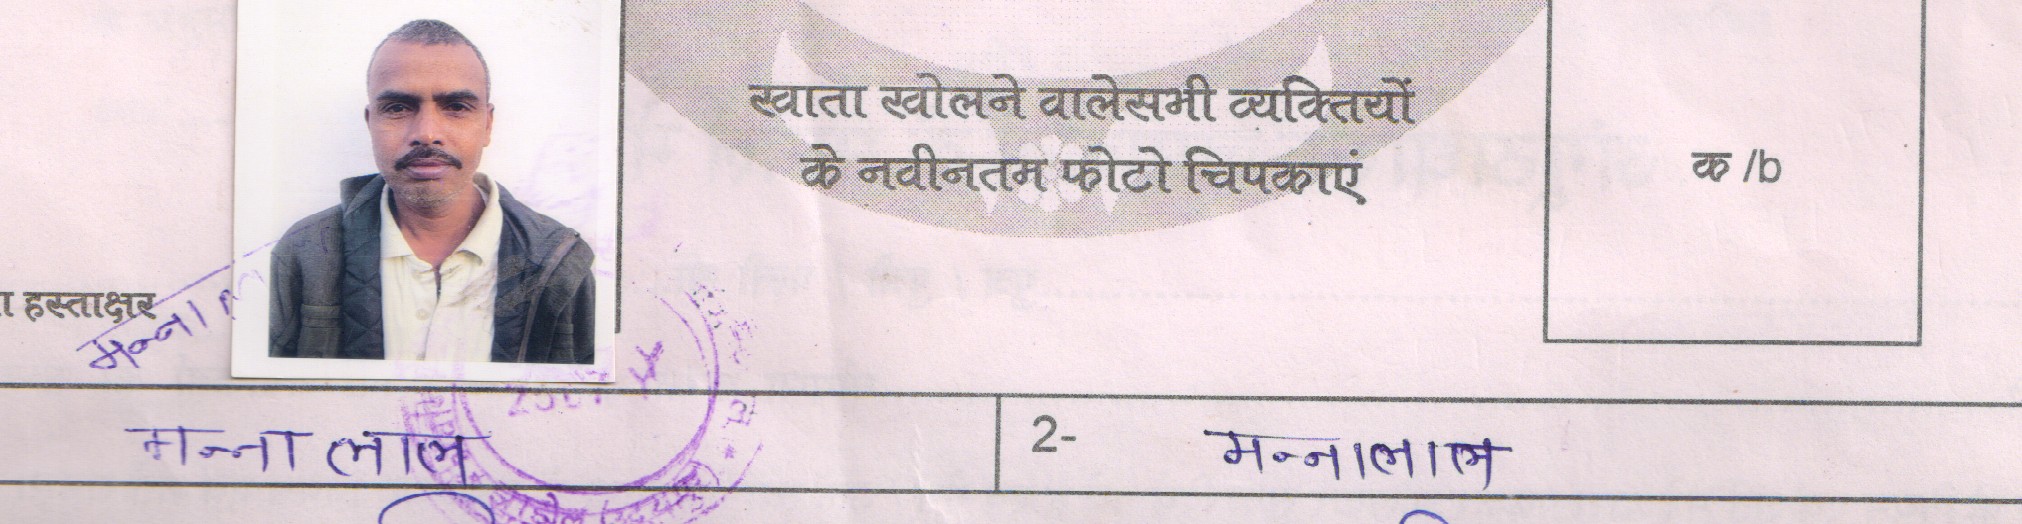 खाता खोलने वालेसभी व्यक्तियों
के नवीनतम फोटो चिपकाएं
क /b
हस्ताक्षर
मन्नालाल
मन्नालाल
2- मन्नालाल